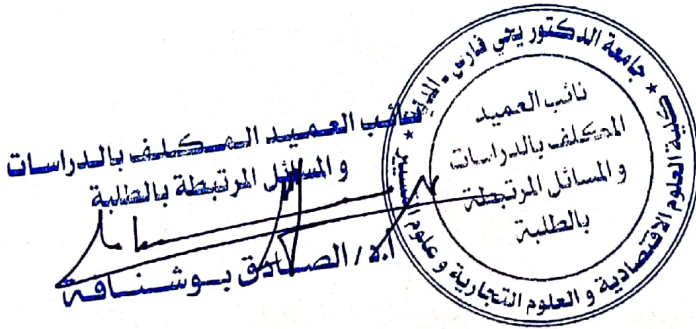 نائب العميد المكلف بالدراسات
و المسائل المرتبطة بالطلبة
أ.د / الصادق بوشنافة
جامعة الدكتور يحي فارس - المدية
كلية العلوم الاقتصادية و العلوم التجارية و علوم التسيير
نائب العميد
المكلف بالدراسات
و المسائل المرتبطة
بالطلبة